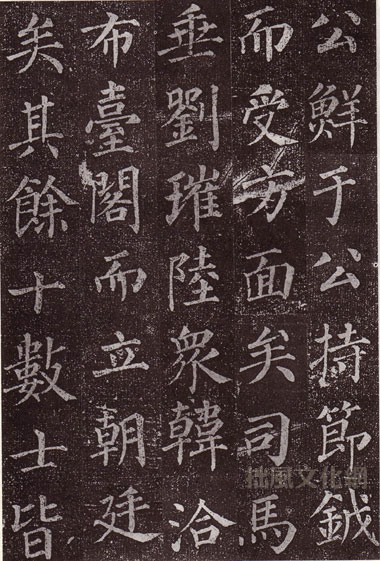 公鮮于公持節鉞
而受方面矣司馬
垂劉璀陸衆韓洽
布臺閣而立朝廷
矣其餘十數士皆
拙風文化網